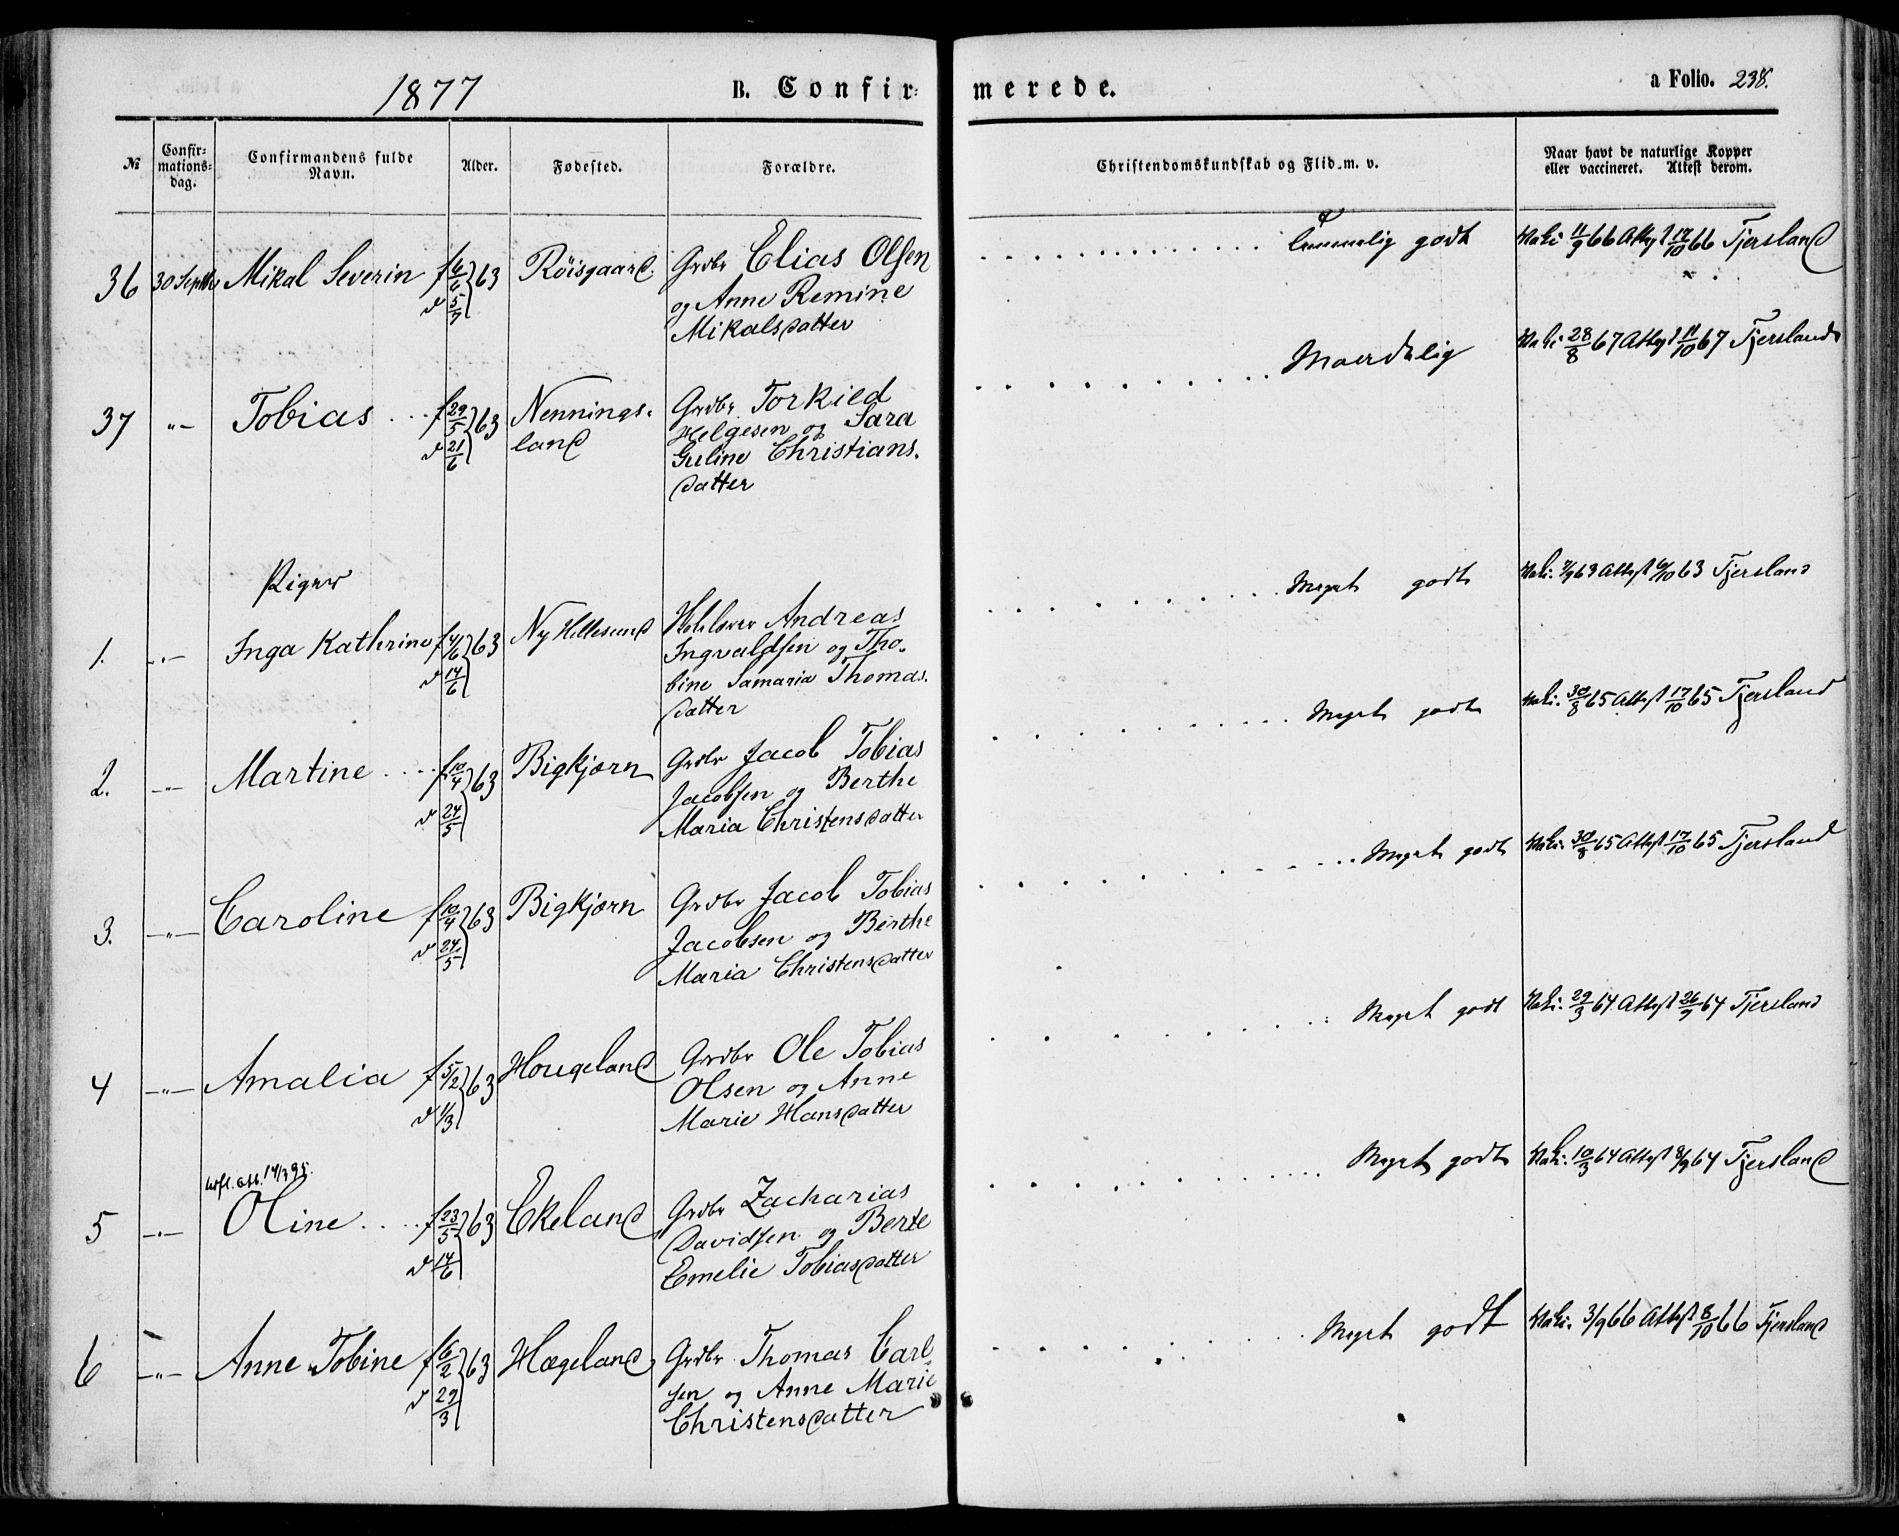 1877
B. Confir-
merede.
a Folio. 238.
№
Confir-
mations-
dag.
Confirmandens fulde
Navn.
Alder.
Fødested.
Forældre.
Christendomskundskab og Flid m. v.
Naar havt de naturlige Kopper
eller vaccineret. Attest derom.
36 30 Septbr Mikal Severin f 6/6 63 Röisgaard. Grdbr Elias Olsen
d 5/7
og Anne Remine
Mikalsdatter
Temmelig godt
Vaki 11/9 66 Attest 17/10 66 Tjersland
37 -"- Tobias f 29/5 63 Nennings- Grdbr Torkild
d 21/6
land
Helgesen og Sara
Guline Christians-
datter
Maadelig
Vaki 28/8 67 Attest 11/10 67 Tjersland
Piger
1. -"- Inga Kathrine f 4/6 63 Ny Hellesund Andreas
d 14/6
Ingvaldsen og Tho-
bine Samaria Thomas-
datter
Meget godt
Vaki. 7/9 63 Attest 6/10 63 Tjersland
2. -"- Martine f 10/4 63 Bigkjørn Grdbr Jacob Tobias
d 24/5
Jacobsen og Berthe
Maria Christensdatter
Meget godt
Vaki. 30/8 65 Attest 17/10 65 Tjersland
3. -"- Caroline f 10/4 63 Bigkjørn Grdbr Jacob Tobias
d 24/5
Jacobsen og Berthe
Maria Christensdatter
Meget godt
Vaki. 30/8 65 Attest 17/10 65 Tjersland
4 -"- Amalia f 5/2 63 Hougeland Grdbr Ole Tobias
d 1/3
Olsen og Anne
Marie Hansdatter
Meget godt
Vaki. 29/3 64 Attest 26/9 64 Tjersland
5 -"- Oline f 23/5 63 Ekeland Grdbr Zacharias
d 14/6
Davidsen og Berte
Emelie Tobiasdatter
Meget godt
Vaki. 10/3 64 Attest 8/9 64 Tjersland
6 -"- Anne Tobine f 6/2 63 Hægeland Grdbr Thomas Carl-
d 29/3
sen og Anne Marie
Christensdatter
Meget godt
Vaki. 3/9 66 Attest 8/10 66 Tjersland